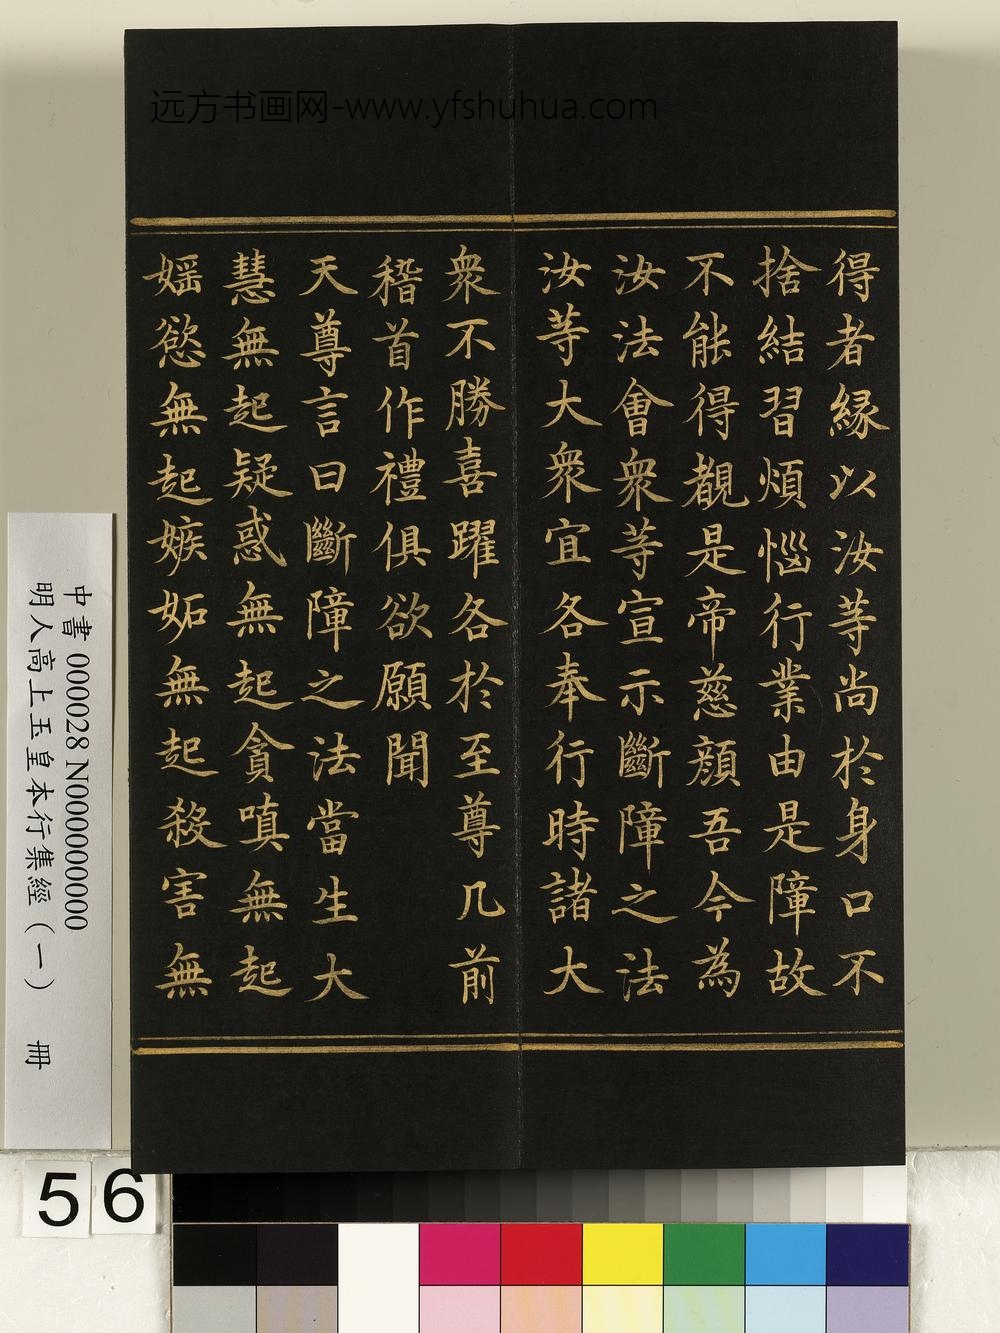 远方书画网-www.yfshuhua.com
得者縁以汝等尚於身口不
捨結習煩惱行業由是障故
不能得覩是帝慈顔吾今為
汝法會衆等宣示斷障之法
汝等大衆宜各奉行時諸大
衆不勝喜躍各於至尊几前
稽首作禮俱欲願聞
天尊言曰斷障之法當生大
慧無起疑惑無起貪嗔無起
婬慾無起嫉妬無起殺害無
中書 000028 N000000000
明人高上玉皇本行集經(一) 冊
56